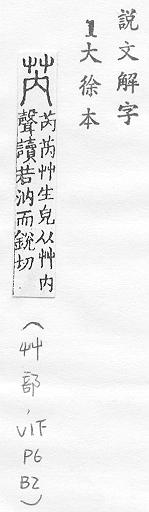 說文解字
1大徐本
芮
芮芮艸生皃从艸内
聲讀若汭而銳切
(艸部,
V1下
P6
B2)